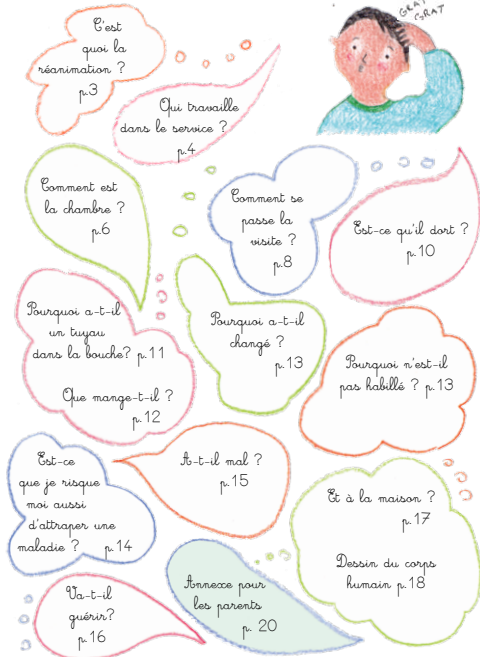 GRAT
GRAT
C'est
quoi la
réanimation ?
p.3
Qui travaille
dans le service ?
p.4
Comment est
la chambre ?
p.6
Comment se
passe la
visite ?
p.8
Est-ce qu'il dort ?
p.10
Pourquoi a-t-il
un tuyau
dans la bouche? p.11
Que mange-t-il ?
p.12
Pourquoi a-t-il
changé ?
p.13
Pourquoi n'est-il
pas habillé ? p.13
Est-ce
que je risque
moi aussi
d'attraper une
maladie ? p.14
A-t-il mal ?
p.15
Et à la maison ?
p.17
Dessin du corps
humain p.18
Va-t-il
guérir?
p.16
Annexe pour
les parents
p. 20